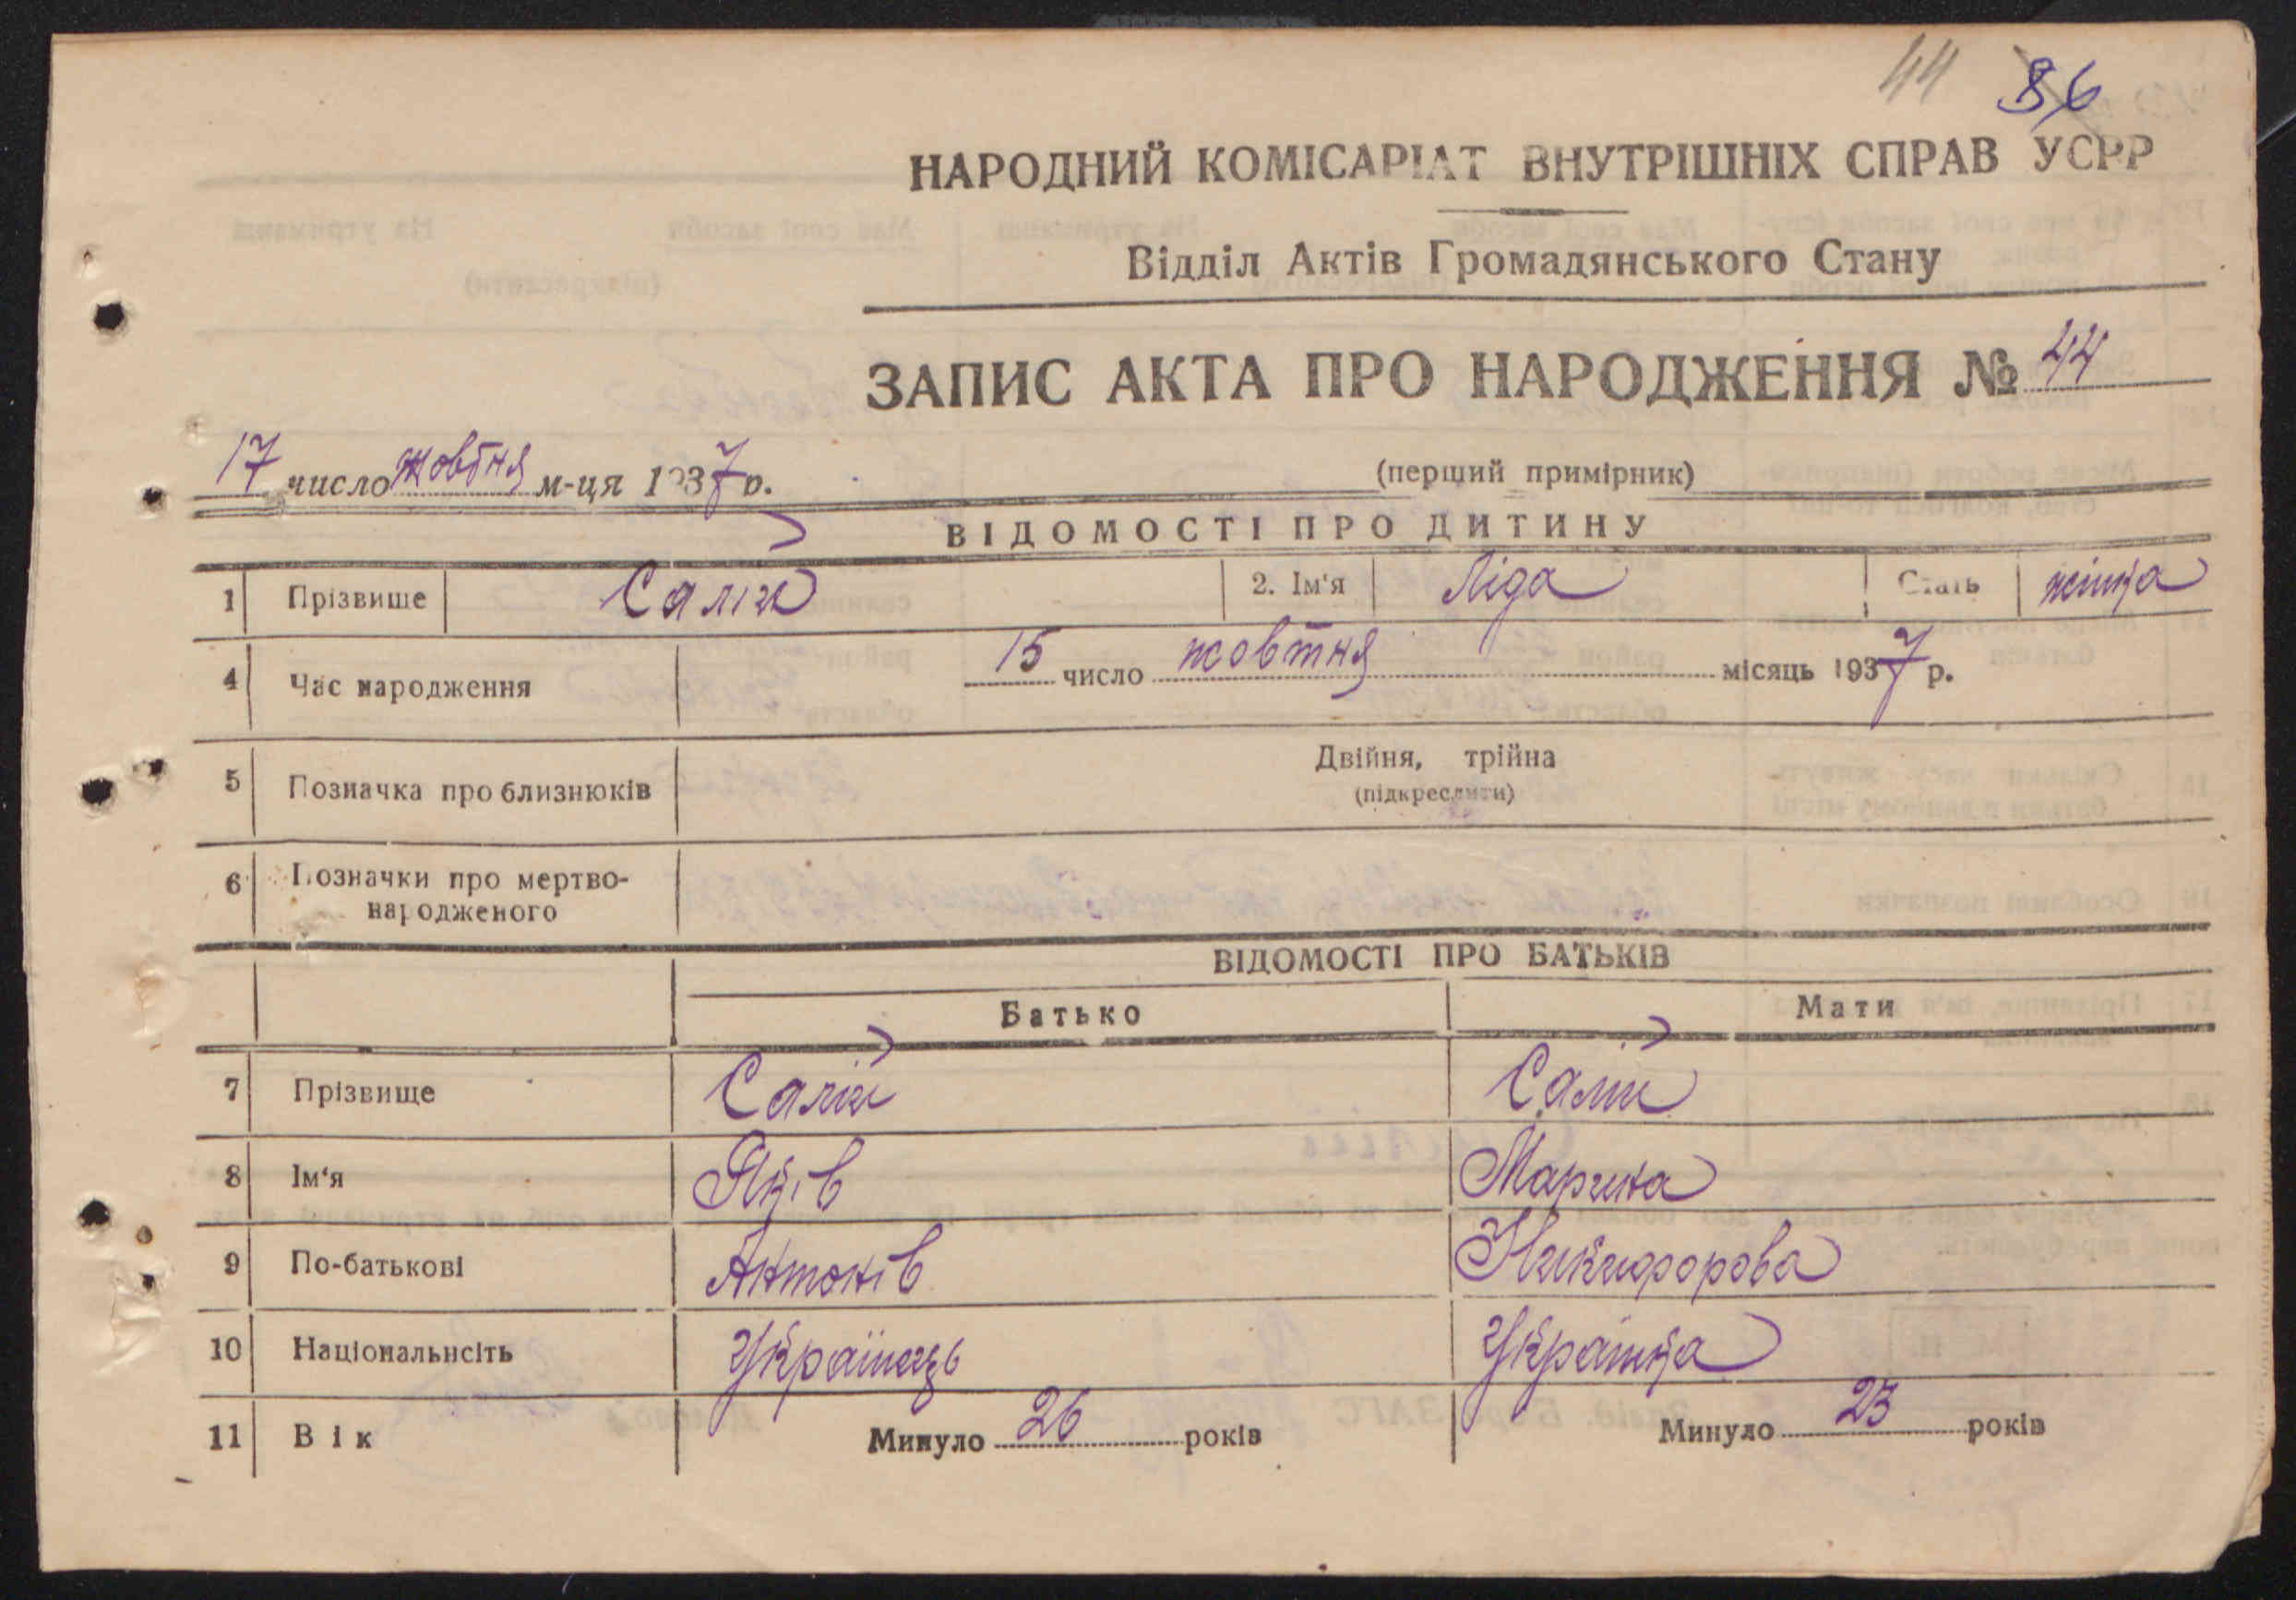 44 86
НАРОДНИЙ КОМІСАРІАТ ВНУТРІШНІХ СПРАВ УСРР
Відділ Актів Громадянського Стану
ЗАПИС АКТА ПРО НАРОДЖЕННЯ № 44
17 число жовтня м-ця 1937 р.
(перший примірник)
ВІДОМОСТІ ПРО ДИТИНУ
1 Прізвище Салій 2. Ім'я Ліда Стать жінка
4 Час народження 15 число жовтня місяць 1937 р.
5 Позначка про близнюків Двійня, трійна
(підкреслити)
6 Позначки про мертво-
народженого
ВІДОМОСТІ ПРО БАТЬКІВ
Батько Мати
7 Прізвище Салій Салій
8 Ім'я Яків Марина
9 По-батькові Антонів Никифорова
10 Національнсіть Українець Українка
11 Вік Минуло 26 років Минуло 23 років